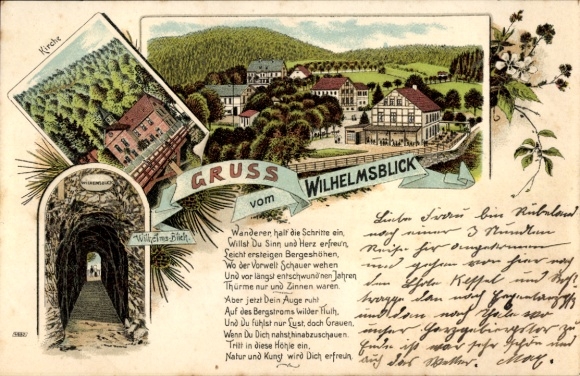 Kirche
WILHELMSBLICK
GRUSS
vom
WILHELMSBLICK
Wilhelms-Blick.
Wanderer, halt die Schritte ein,
Willst Du Sinn und Herz erfreu'n,
Leicht ersteigen Bergeshöhen,
Wo der Vorwelt Schauer wehen
Und vor längst entschwund'nen Jahren
Thürme nur und Zinnen waren.
Aber jetzt Dein Auge ruht
Auf des Bergstroms wilder Fluth,
Und Du fühlst nur Lust, doch Grauen,
Wenn Du Dich nahst, hinabzuschauen.
Tritt in diese Höhle ein,
Natur und Kunst wird Dich erfreun.
Liebe Frau bin Rübeland
nach einer 3 Stunden
Reise hier angekommen
und gehen von hier nach
dem Kessel und
dan nach
und dan nach
unser
Ende ist war sehr schön und
auch das Wetter. Max.